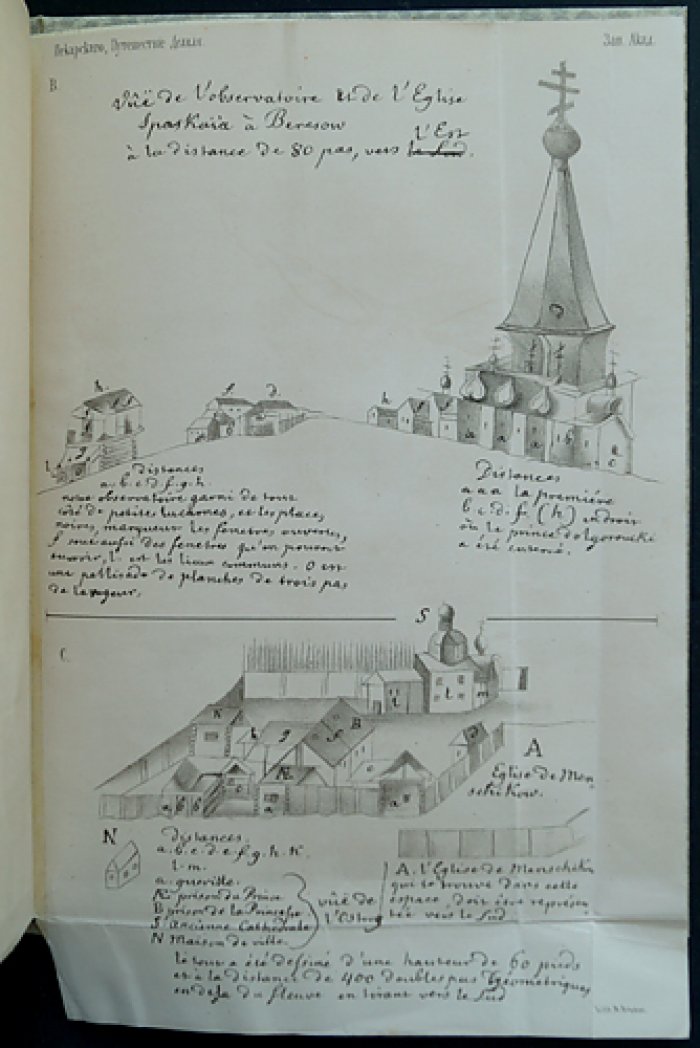 Пекарскаго, Путешествіе Делиля
Зап. Акад.
B
Vüë de l'observatoire et de l'Eglise
Spaskaïa à Beresow
l'Est
à la distance de 80 pas, vers le Sud.
h
f
d
g
l
h
f
a a a b
c
Distances
a. b. c. d. f. g. h.
nouv observatoire garni de tout
côté de petites lucarnes, et les places
noires, marquent les fenetres ouvertes,
f aussi des fenetres qu'on pouvoit
ouvrir, l. est les lieux communs. O est
une pallisade de planches de trois pas
de largeur.
Distances
a a a la première
b. c. d. f. (h) endroit
où le prince dolgorouki
a été enfermé.
S
C.
K
h
g
B
f
i
l
m
Æ
c
d
a
b
b
e
a
a
A
Eglise de Men-
schikow.
N
Distances.
a. b. c. d. e. f. g. h. K.
l. m.
a. guerite.
Æ prison du Prince
B prison de la Princesse
S l'Ancienne Cathédrale
N Maison de ville.
vüë de
l'Ostrog
A. l'Eglise de Menschikow
qui se trouve dans cette
espace, doit être représen
tée vers le Sud
le tout a été dessiné d'une hauteur de 60 pieds
et à la distance de 400 doubles pas géometriques
en dela du fleuve en tirant vers le Sud